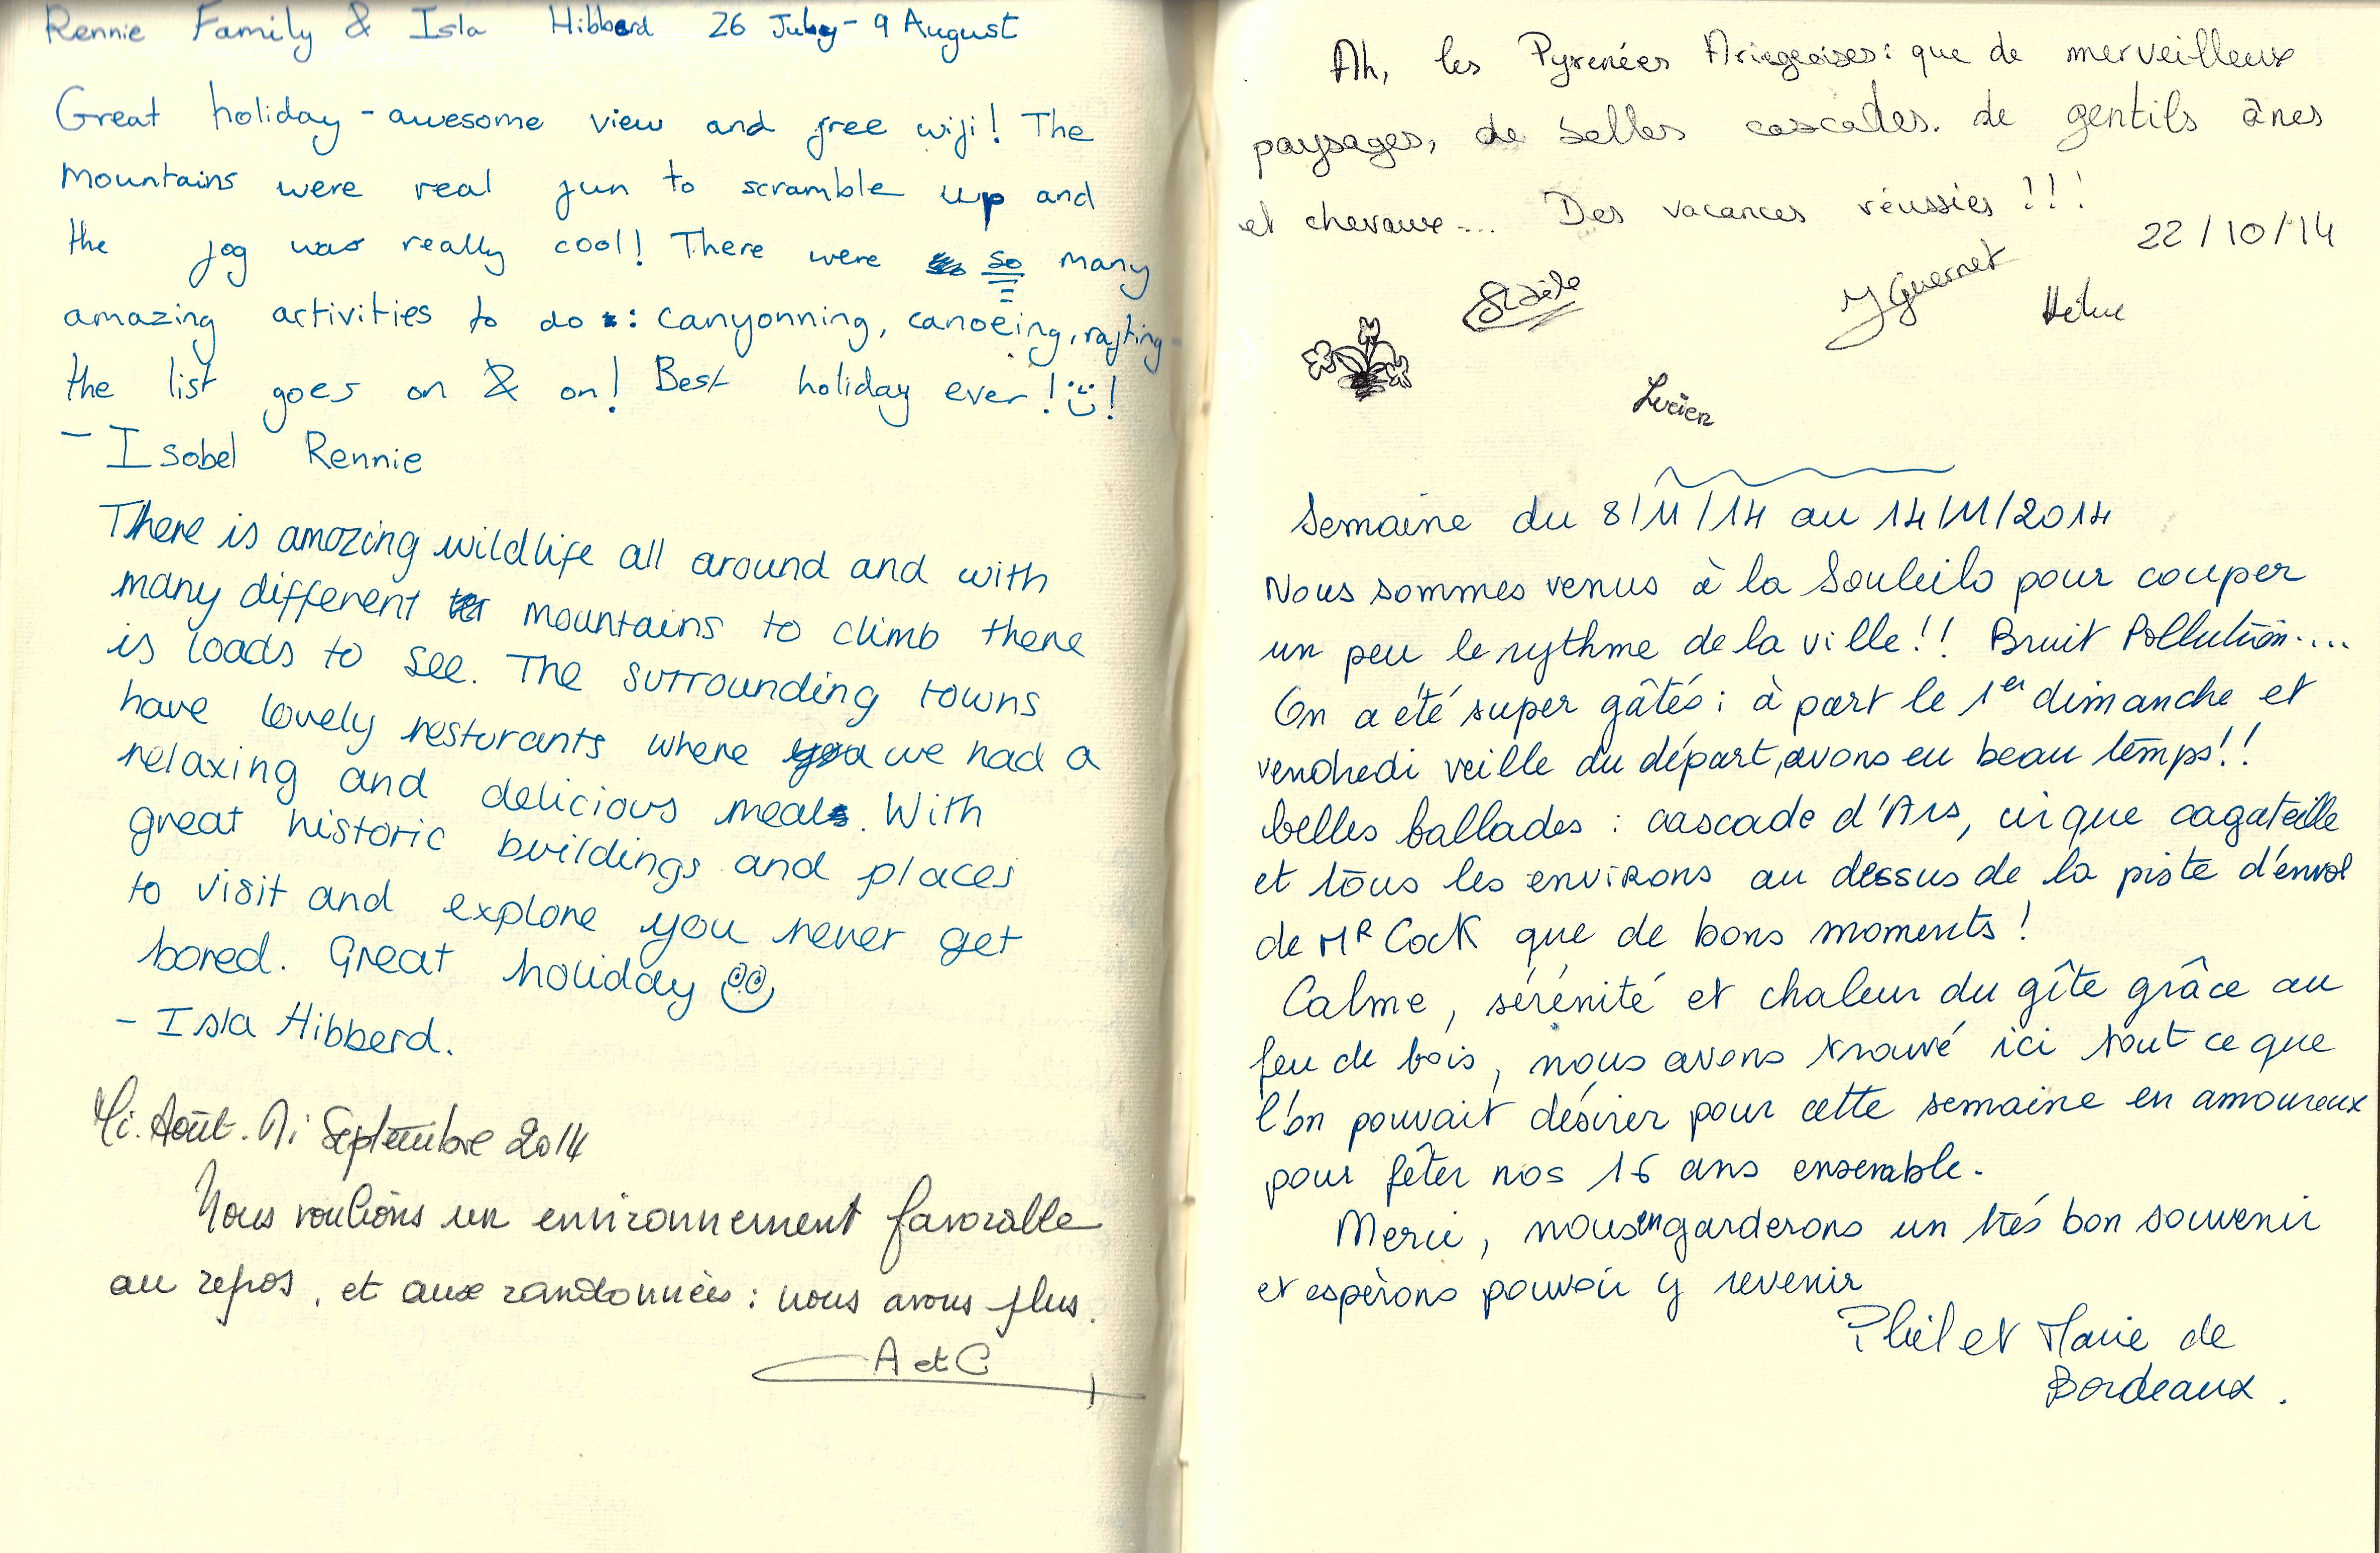 Rennie Family & Isla Hibberd 26 July - 9 August
Great holiday - awesome view and free wifi! The
mountains were real fun to scramble up and
the fog was really cool! There were so many
amazing activities to do : canyonning, canoeing, rafting -
the list goes on & on! Best holiday ever !!
- Isobel Rennie
There is amazing wildlife all around and with
many different mountains to climb there
is loads to see. The surrounding towns
have lovely resturants where we had a
relaxing and delicious meal. With
great historic buildings and places
to visit and explore you never get
bored. Great holiday
- Isla Hibberd.
Mi. Août. Mi Septembre 2014
Nous voulions un environnement favorable
au repos, et aux randonnées : nous avons plus.
A et C
Ah, les Pyrenées Ariegeoises : que de merveilleux
paysages, de belles cascades. de gentils ânes
et chevaux... Des vacances réussies !!!
22/10/14
Y Guernet
Lucien
Semaine du 8/11/14 au 14/11/2014
Nous sommes venus à la Souleilo pour couper
un peu le rythme de la ville!! Bruit Pollution....
On a été super gâtés ; à part le 1er dimanche et
vendredi veille du départ, avons eu beau temps!!
belles ballades : cascade d'Ars, cirque cagateille
et tous les environs au dessus de la piste d'envol
de Mr Cock que de bons moments !
Calme, sérénité et chaleur du gîte grâce au
feu de bois, nous avons trouvé ici tout ce que
l'on pouvait désirer pour cette semaine en amoureux
pour fêter nos 16 ans ensemble.
Merci, nous en garderons un très bon souvenir
et espèrons pouvoir y revenir
Phil et Marie de
Bordeaux.